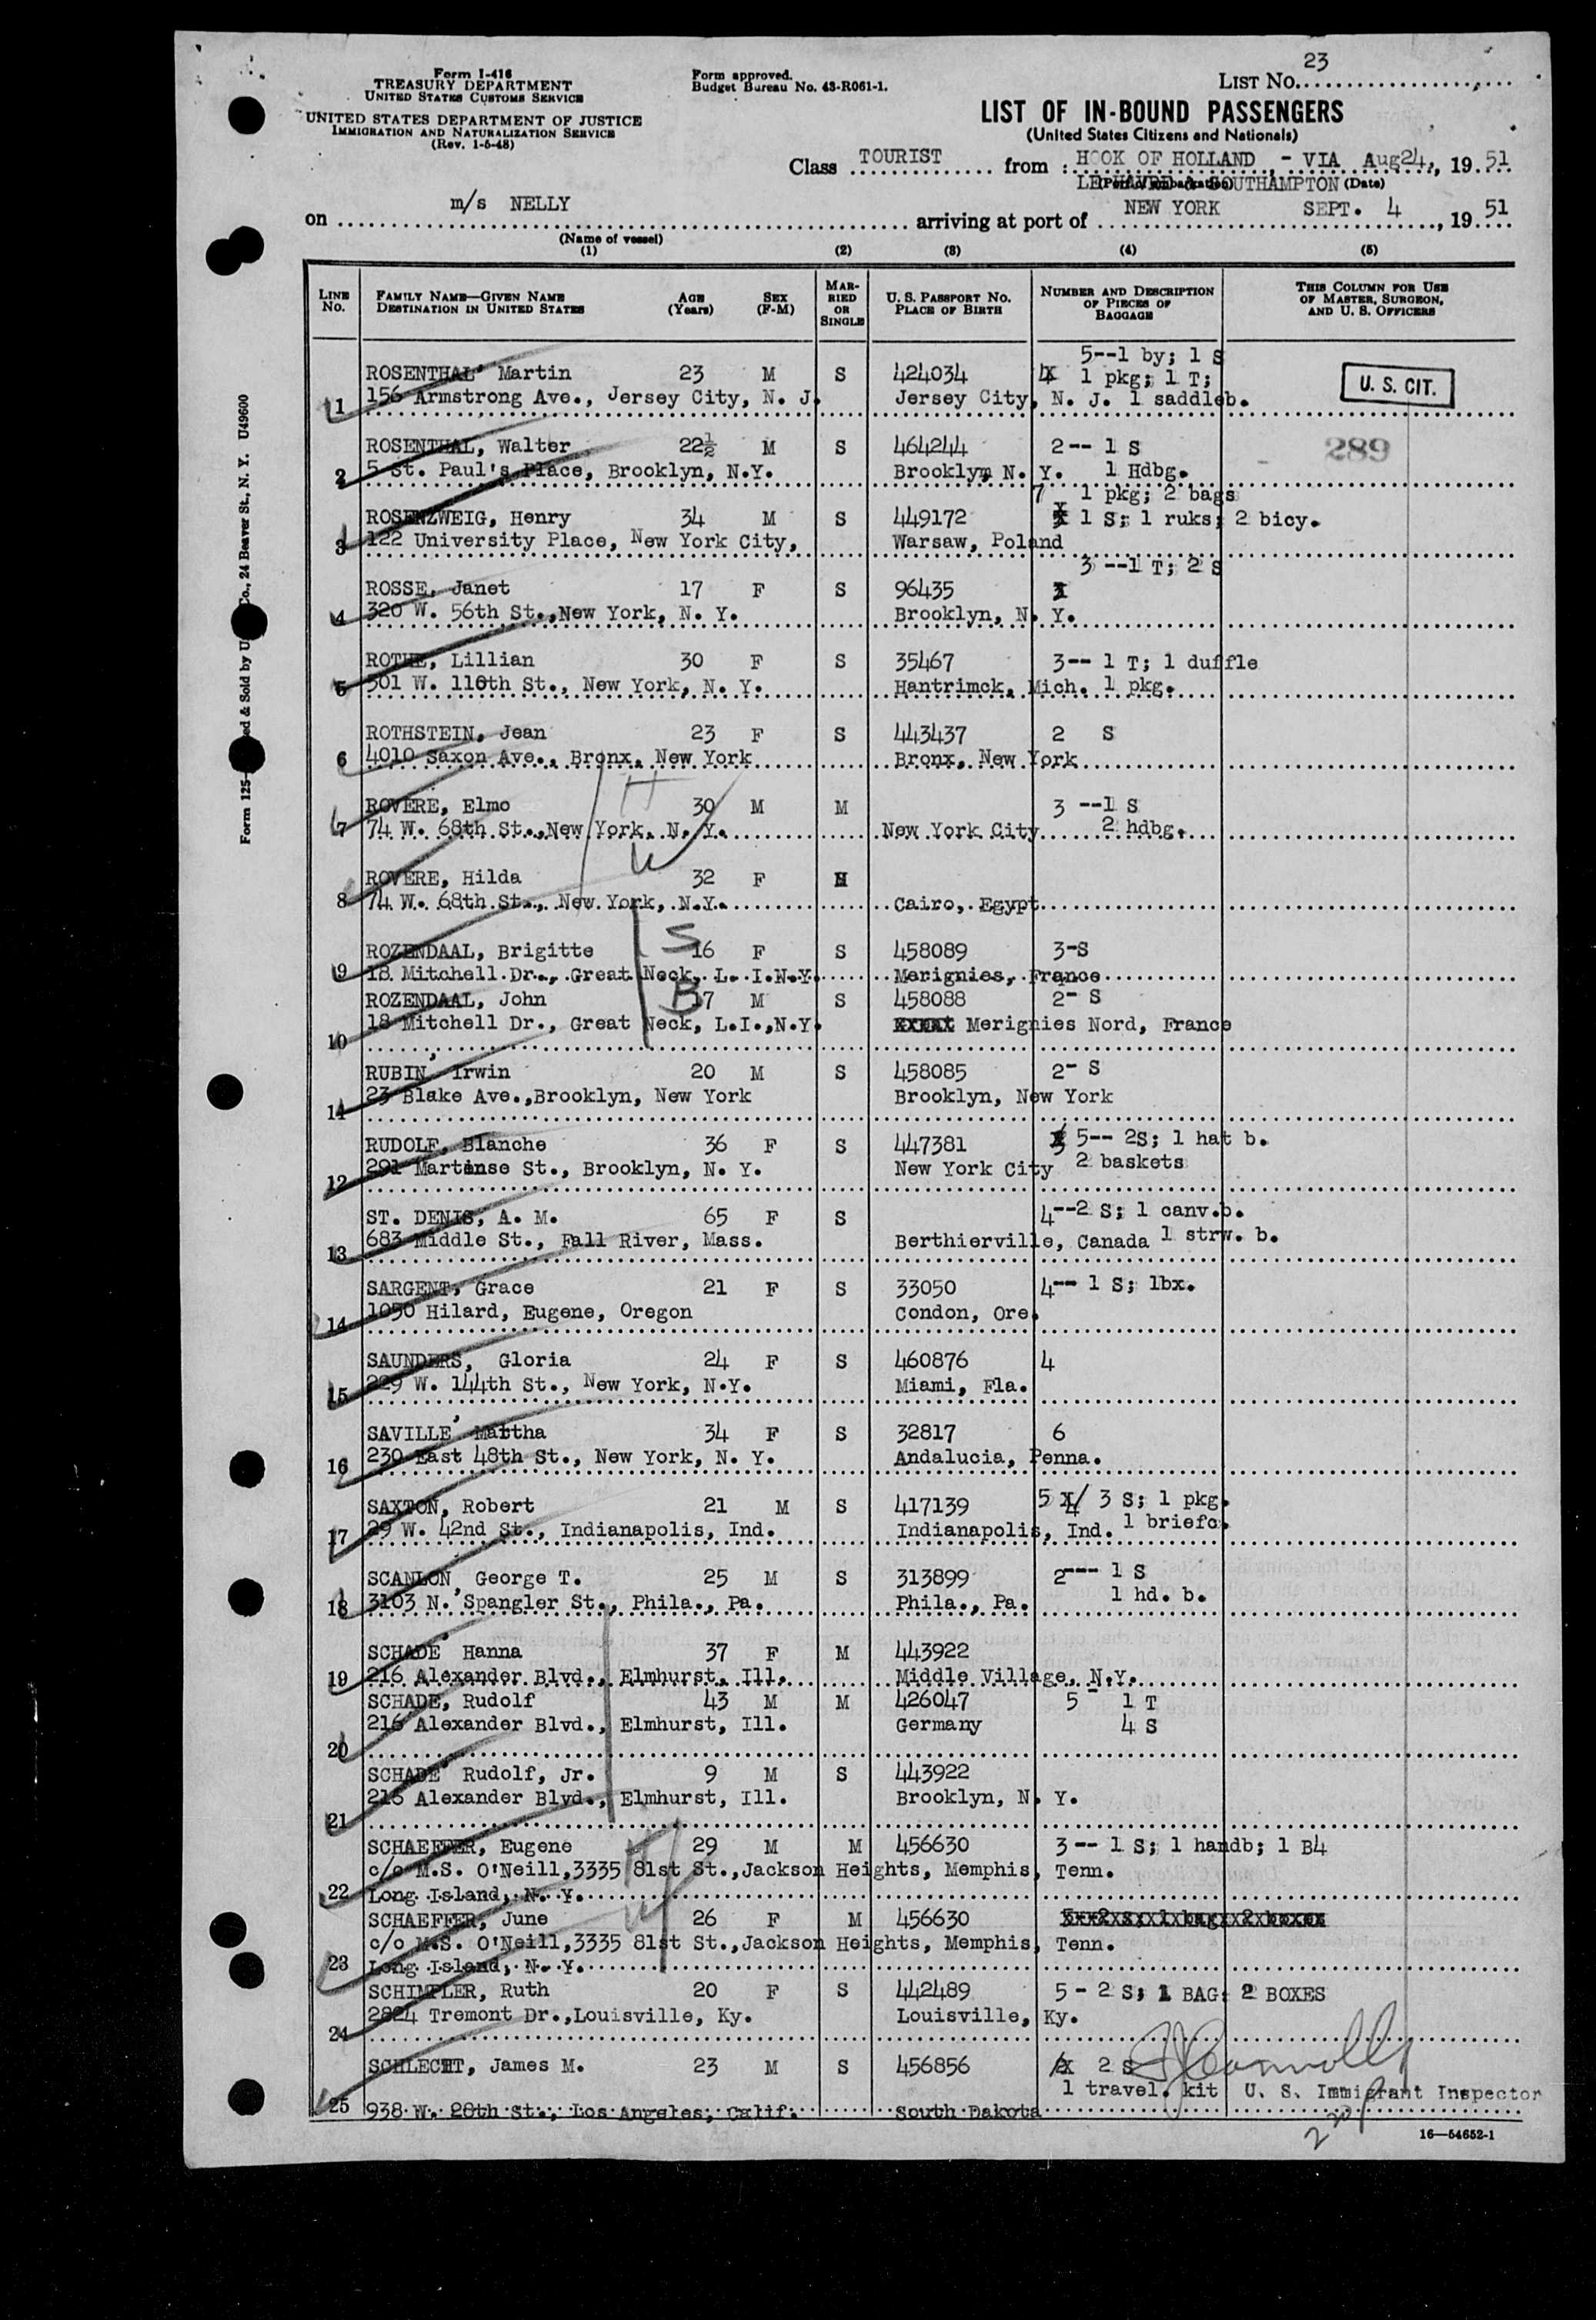 23
Form I-416
TREASURY DEPARTMENT
UNITED STATES CUSTOMS SERVICE
UNITED STATES DEPARTMENT OF JUSTICE
IMMIGRATION AND NATURALIZATION SERVICE
(Rev. 1-5-48)
Form approved.
Budget Bureau No. 43-R061-1.
LIST No.
LIST OF IN-BOUND PASSENGERS
(United States Citizens and Nationals)
Class TOURIST from : HOOK OF HOLLAND, - VIA Aug 24, 1951
LE HAVRE & SOUTHAMPTON (Date)
on m/s NELLY arriving at port of NEW YORK SEPT. 4, 1951
(Name of vessel)
(1) (2) (3) (4) (5)
LINE No. FAMILY NAME—GIVEN NAME DESTINATION IN UNITED STATES AGE (Years) SEX (F-M) MARRIED OR SINGLE U. S. PASSPORT No. PLACE OF BIRTH NUMBER AND DESCRIPTION OF PIECES OF BAGGAGE THIS COLUMN FOR USE OF MASTER, SURGEON, AND U. S. OFFICERS
5--1 by; 1 S
ROSENTHAL, Martin 23 M S 424034 1 pkg; 1 T;
1 156 Armstrong Ave., Jersey City, N. J. Jersey City, N. J. 1 saddleb.
U. S. CIT.
ROSENTHAL, Walter 22½ M S 464244 2-- 1 S
289
2 5 St. Paul's Place, Brooklyn, N.Y. Brooklyn N. Y. 1 Hdbg.
7 1 pkg; 2 bags
ROSENZWEIG, Henry 34 M S 449172 1 S; 1 ruks; 2 bicy.
3 122 University Place, New York City, Warsaw, Poland
3 --1 T; 2 S
ROSSE, Janet 17 F S 96435
4 320 W. 56th St., New York, N. Y. Brooklyn, N. Y.
ROTHE, Lillian 30 F S 35467 3-- 1 T; 1 duffle
5 501 W. 110th St., New York, N. Y. Hantrimck, Mich. 1 pkg.
ROTHSTEIN, Jean 23 F S 443437 2 S
6 4010 Saxon Ave., Bronx, New York Bronx, New York
ROVERE, Elmo 30 M M 3 --1 S
7 74 W. 68th St., New York, N. Y. New York City 2 hdbg.
H
W
ROVERE, Hilda 32 F M
8 74 W. 68th St., New York, N.Y. Cairo, Egypt
ROZENDAAL, Brigitte S 16 F S 458089 3-S
9 18 Mitchell Dr., Great Neck, L. I.N.Y. Merignies, France
ROZENDAAL, John B 17 M S 458088 2- S
10 18 Mitchell Dr., Great Neck, L.I.,N.Y. Merignies Nord, France
RUBIN, Irwin 20 M S 458085 2- S
11 23 Blake Ave.,Brooklyn, New York Brooklyn, New York
RUDOLF, Blanche 36 F S 447381 5-- 2S; 1 hat b.
12 291 Martense St., Brooklyn, N. Y. New York City 2 baskets
ST. DENIS, A. M. 65 F S 4--2 S; 1 canv.b.
13 683 Middle St., Fall River, Mass. Berthierville, Canada 1 strw. b.
SARGENT, Grace 21 F S 33050 4-- 1 S; 1bx.
14 1050 Hilard, Eugene, Oregon Condon, Ore.
SAUNDERS, Gloria 24 F S 460876 4
15 229 W. 144th St., New York, N.Y. Miami, Fla.
SAVILLE, Martha 34 F S 32817 6
16 230 East 48th St., New York, N. Y. Andalucia, Penna.
SAXTON, Robert 21 M S 417139 5 3 S; 1 pkg.
17 29 W. 42nd St., Indianapolis, Ind. Indianapolis, Ind. 1 briefc.
SCANLON, George T. 25 M S 313899 2--- 1 S
18 3103 N. Spangler St., Phila., Pa. Phila., Pa. 1 hd. b.
SCHADE, Hanna 37 F M 443922
19 216 Alexander Blvd., Elmhurst, Ill. Middle Village, N.Y.
SCHADE, Rudolf 43 M M 426047 5 - 1 T
20 216 Alexander Blvd., Elmhurst, Ill. Germany 4 S
SCHADE, Rudolf, Jr. 9 M S 443922
21 216 Alexander Blvd., Elmhurst, Ill. Brooklyn, N. Y.
SCHAEFFER, Eugene 29 M M 456630 3-- 1 S; 1 handb; 1 B4
c/o M.S. O'Neill,3335 81st St.,Jackson Heights, Memphis, Tenn.
22 Long Island, N. Y.
H
W
SCHAEFFER, June 26 F M 456630
c/o M.S. O'Neill,3335 81st St.,Jackson Heights, Memphis, Tenn.
23 Long Island, N. Y.
SCHIMPLER, Ruth 20 F S 442489 5 - 2 S; 1 BAG; 2 BOXES
24 2824 Tremont Dr.,Louisville, Ky. Louisville, Ky.
SCHLECHT, James M. 23 M S 456856 2 S
1 travel. kit U. S. Immigrant Inspector
25 938 W. 28th St., Los Angeles, Calif. South Dakota
16—54652-1
Co., 24 Beaver St., N. Y. U49600
ed & Sold by U
Form 125-